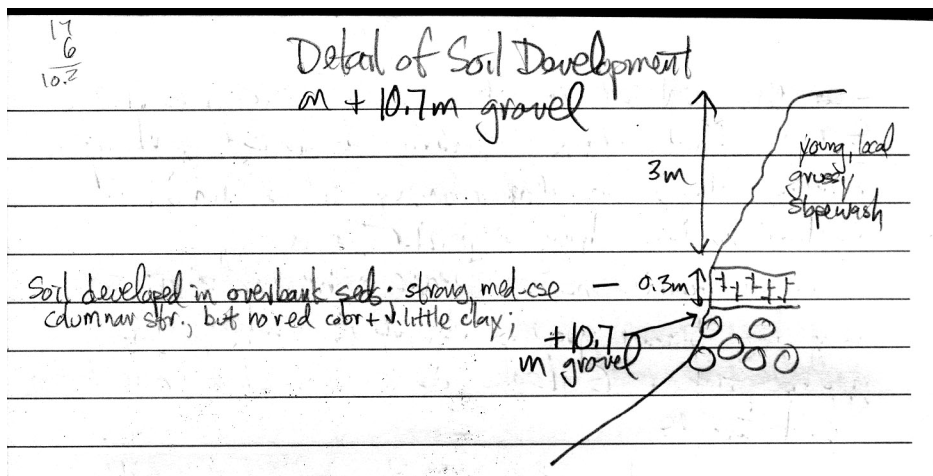 17
6
10.2
Detail of Soil Development
on + 10.7m gravel
3m
young, local
grussy
slopewash
Soil developed in overbank seds; strong, med-cse — 0.3m
columnar str., but no red color + v. little clay;
+10.7
m gravel